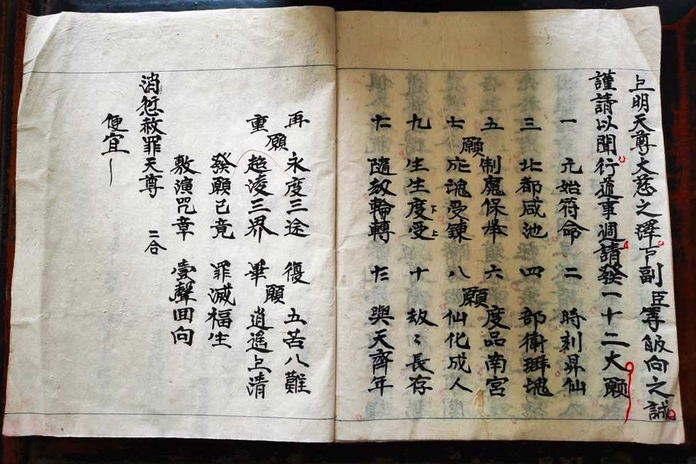 上明天尊大慈之墀下副臣等皈向之誠
謹請以聞行道事週請發一十二大願
一 元始符命 二 時刻昇仙
三 北都咸池 四 部衛
五 制魔保舉 六 度品南宮
願 願
七 死魂受鍊 八 仙化成人
九 生生度受 下上 十 劫々長存
十一 隨劫輪轉 十二 與天齊年
再 永度三途 復 五苦八難
願 願
重 超凌三界 畢 逍遙上清
發願已竟 罪滅福生
敷演咒章 壹聲回向
消愆赦罪天尊 二合
便宜